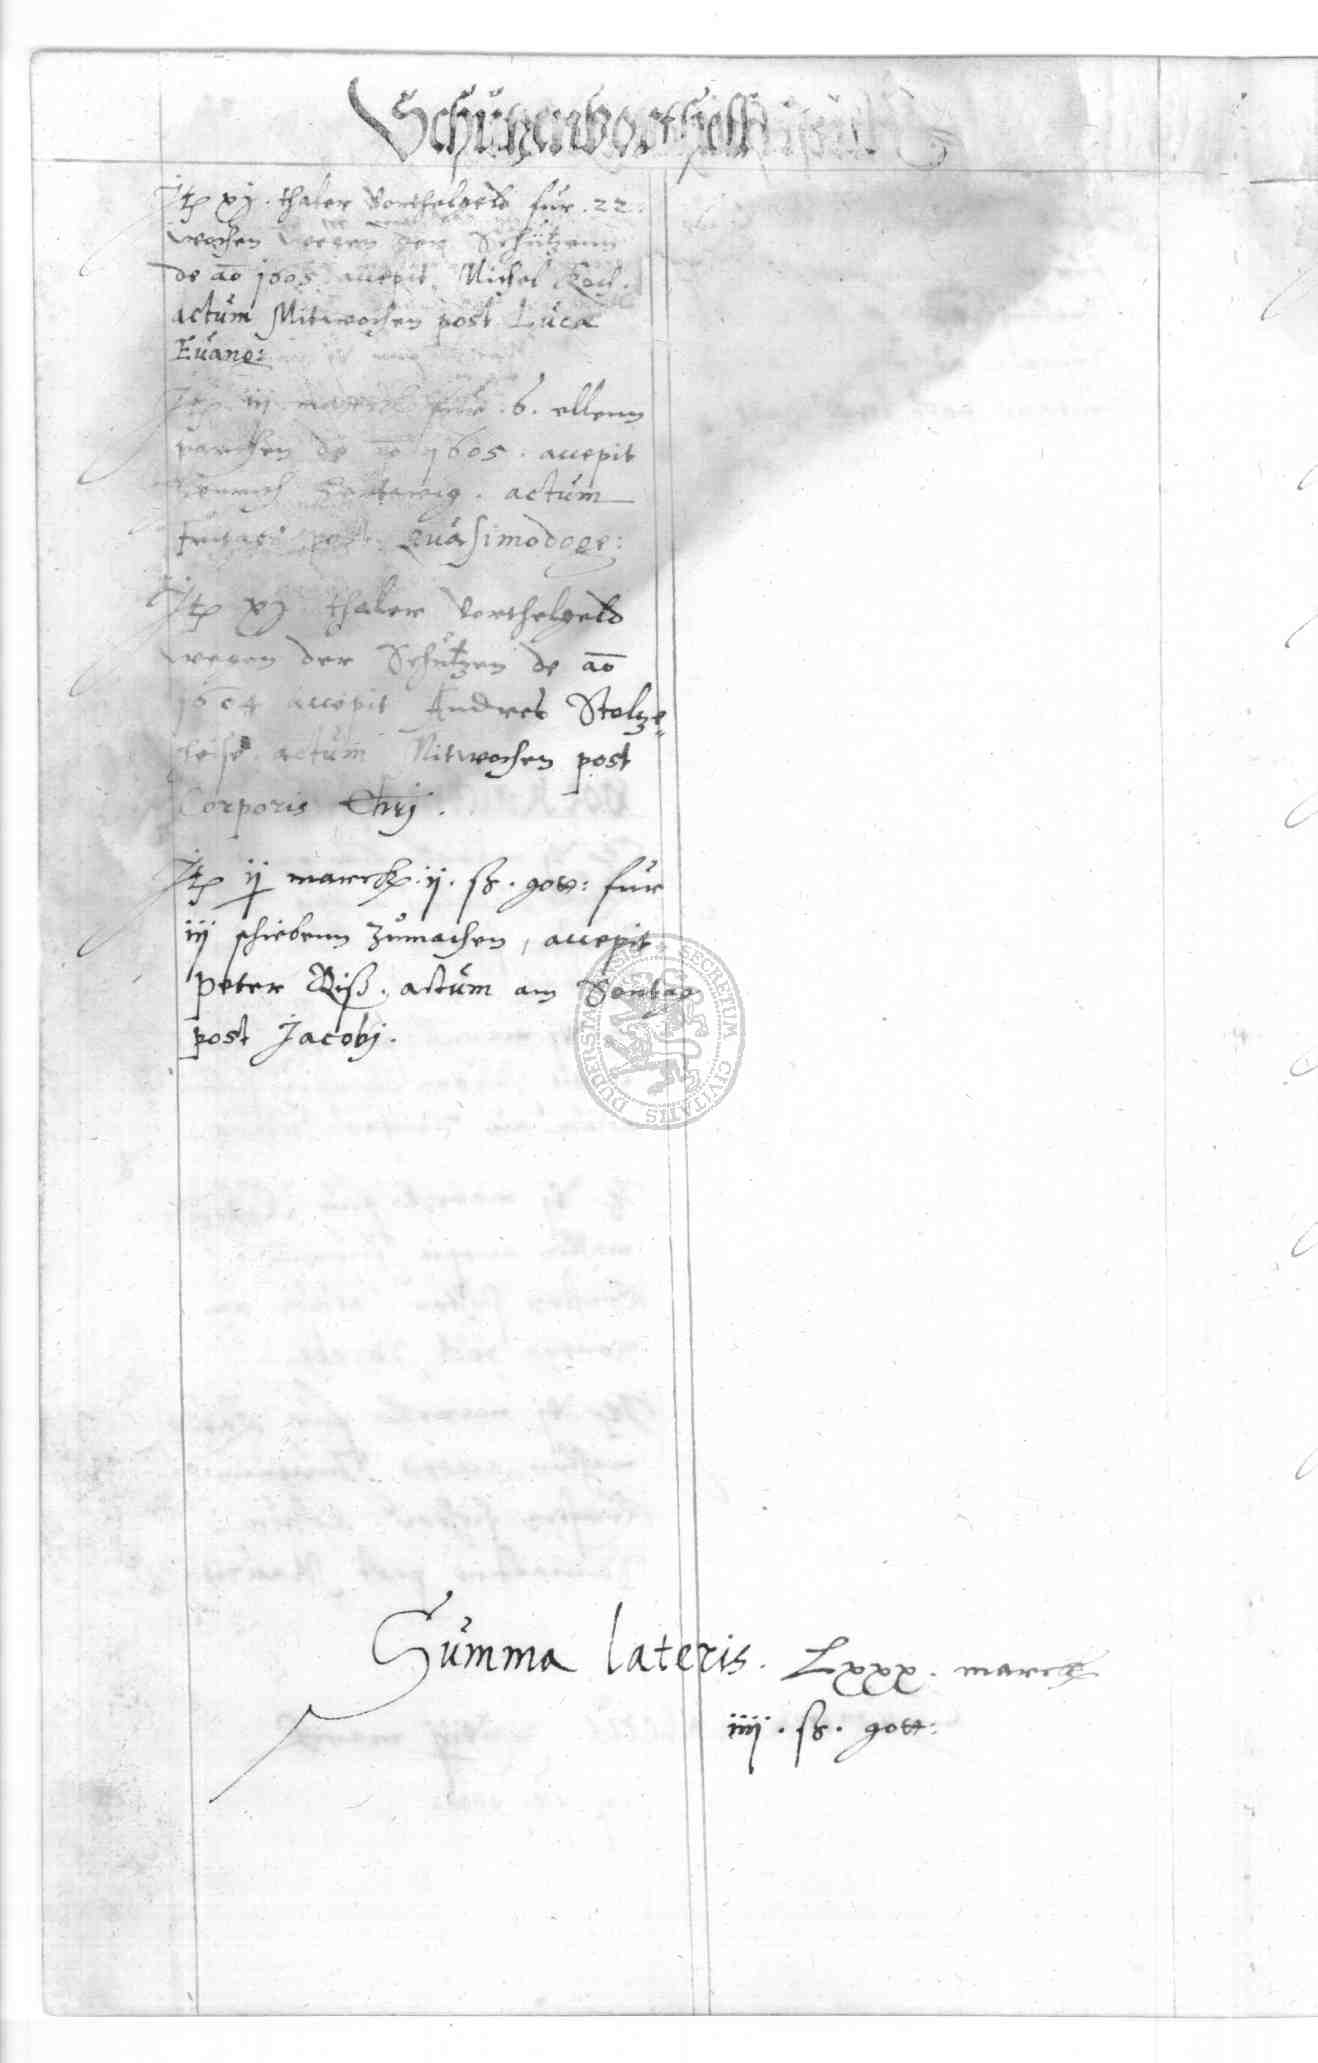 Schützenvortheill
Itp xj . thaler Vorthelgeld für . 22 .
wochen wegen der Schützenn
de ao 1605 accepit Michel Koch .
actum Mitwochen post Luca
Evang:
Itp iij marck für . 6 . ellenn
parchen de ao 1605 . accepit
actum
Freitags post Quasimodoge:
Itp xj thaler Vorthelgeld
wegen der Schützen de ao
1604 accepit Andres Stolze=
heise actum Mitwochen post
Corporis Chrj .
Itp ij marck . ij . ß . gott: für
iij schiebenn zumachen , accepit
Peter Riß . actum am Sontag
post Jacobj .
SECRETUM CIVITATIS DUDERSTADENSIS
Summa lateris . Lxxx . marck
iiij . ß . gott: